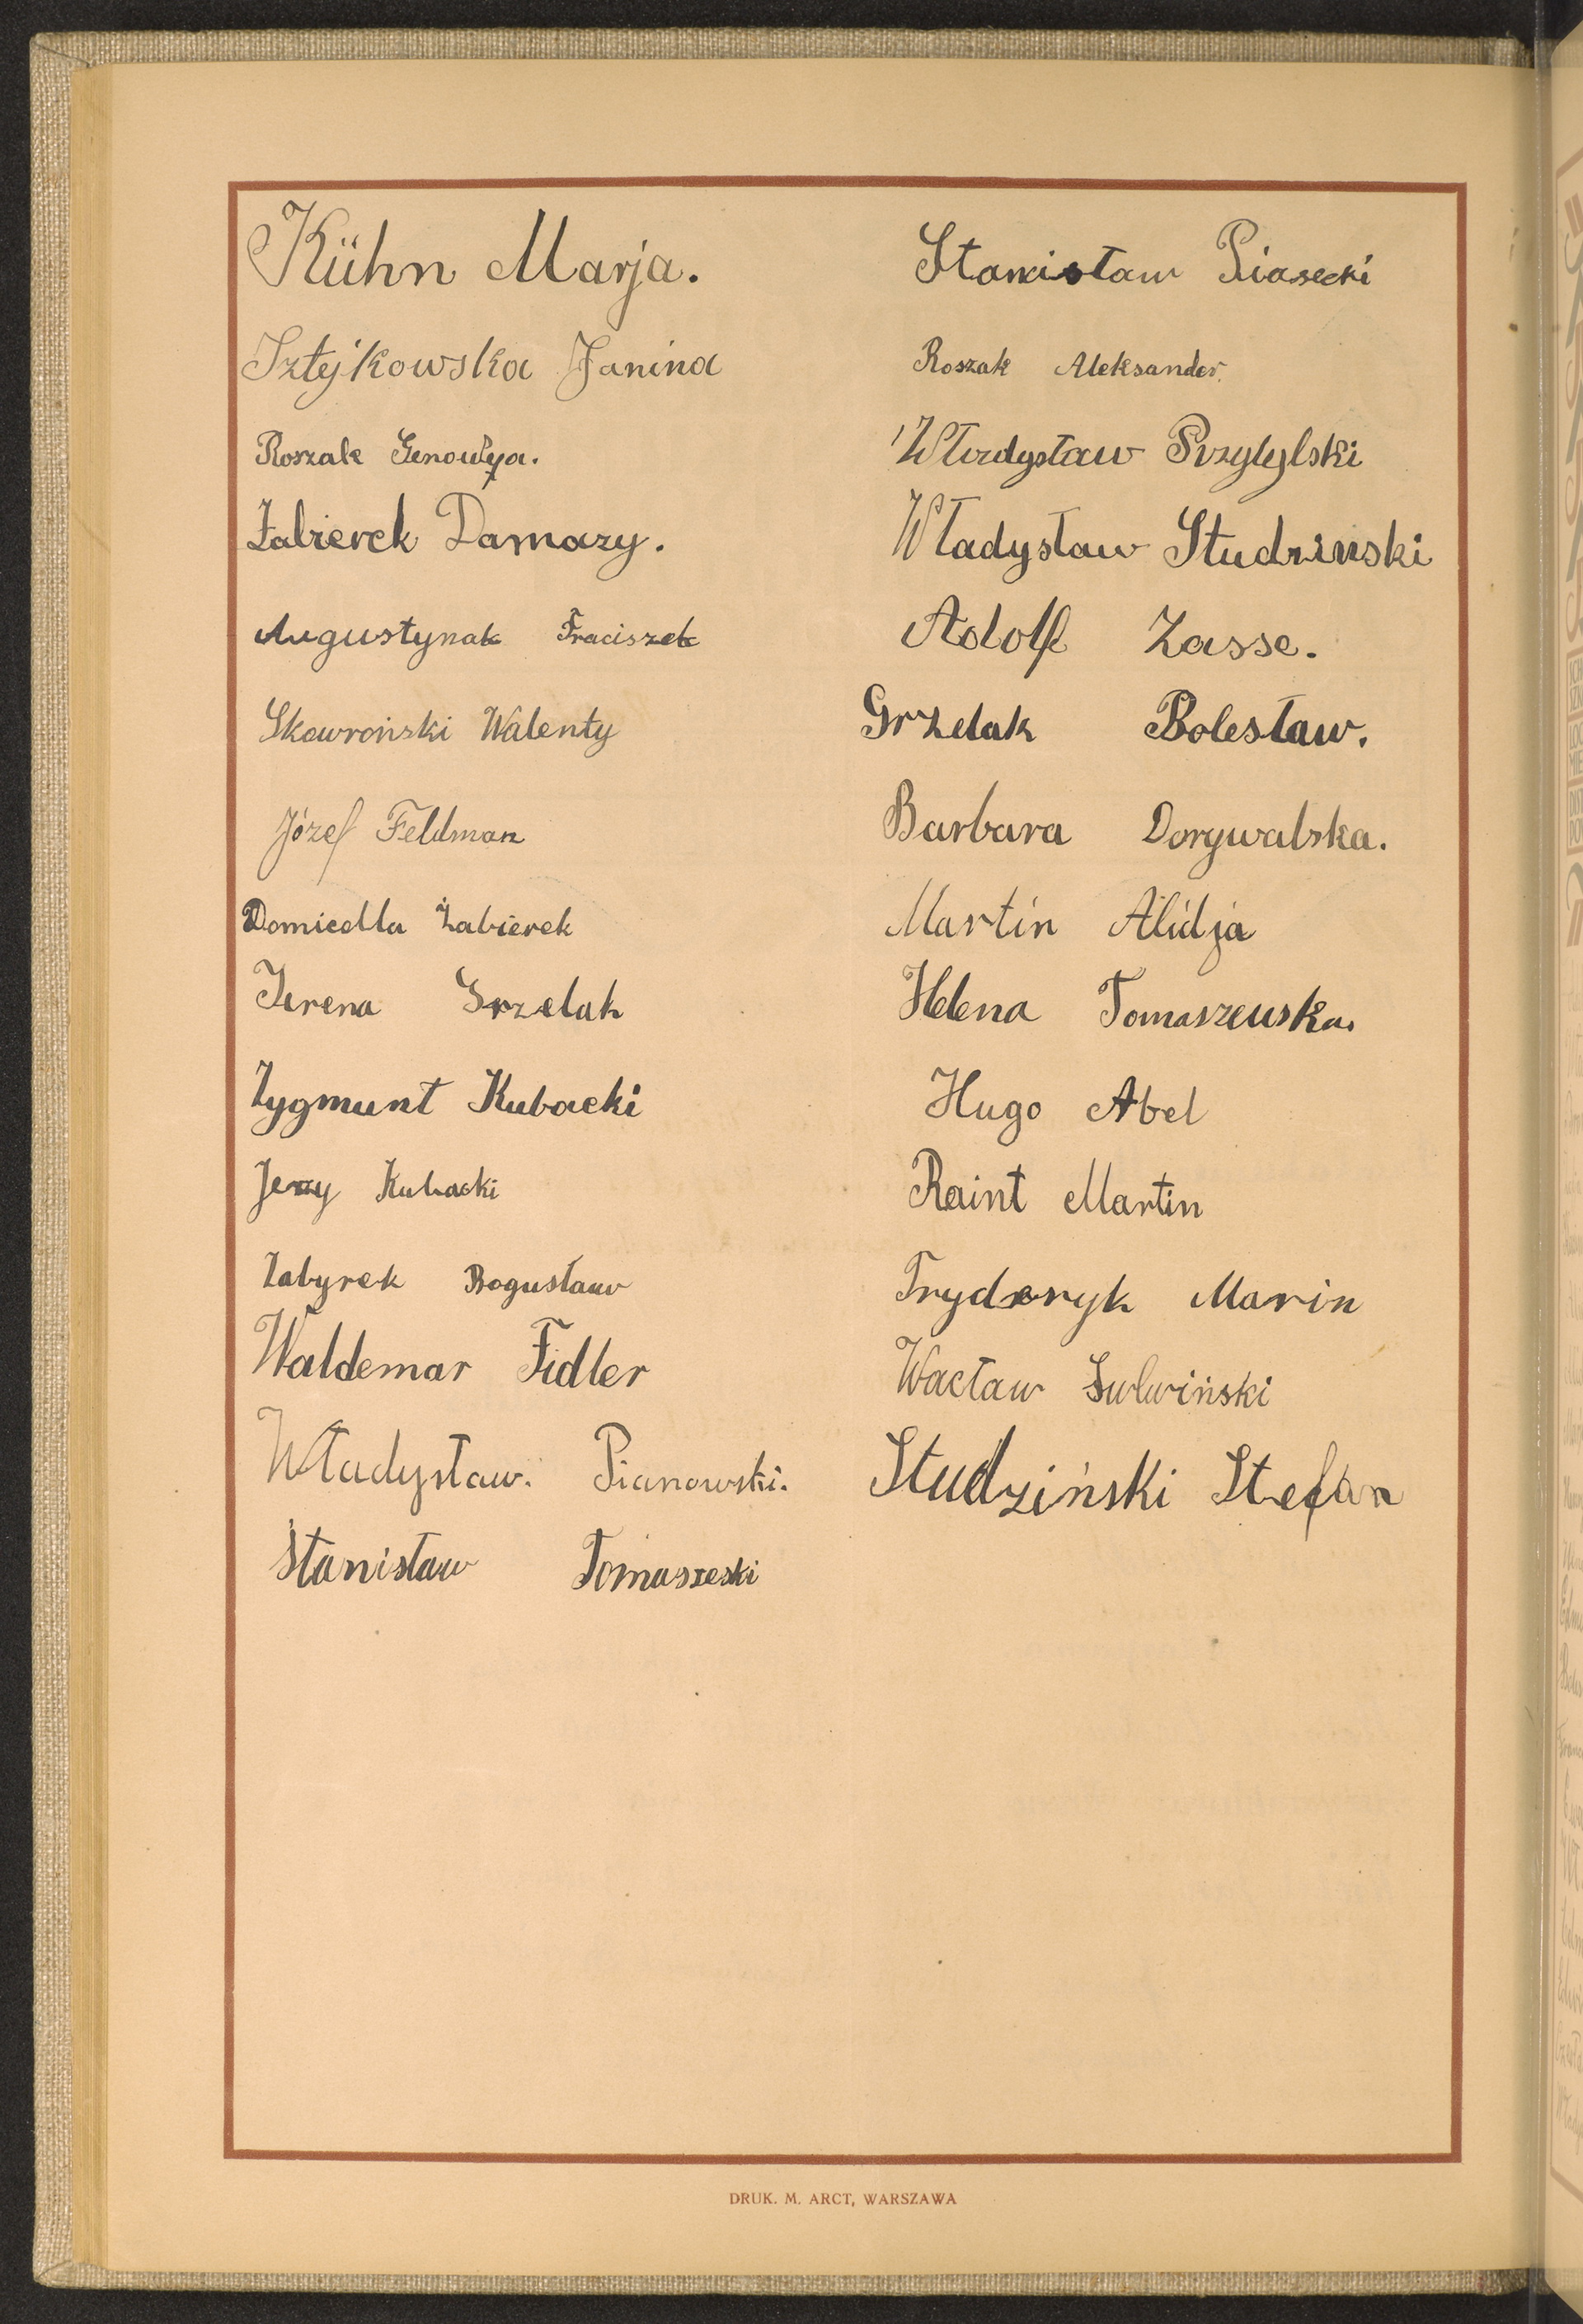 Kühn Marja.
Sztejkowska Janina
Roszak Genowefa.
Żabierek Damazy.
Augustynak Fraciszek
Skowroński Walenty
Józef Feldman
Domicella Żabierek
Irena Grzelak
Zygmunt Kubacki
Jerzy Kubacki
Żabyrek Bogusław
Waldemar Fidler
Władysław. Pianowski.
Stanisław Tomaszeski
Stanisław Piasecki
Roszak Aleksander.
Władysław Przybylski
Władysław Studzinski
Adolf Zasse.
Grzelak Bolesław.
Barbara Dorywalska.
Martin Alidja
Helena Tomaszewska.
Hugo Abel
Raint Martin
Fryderyk Marin
Wacław
Studziński Stefan
DRUK. M. ARCT, WARSZAWA